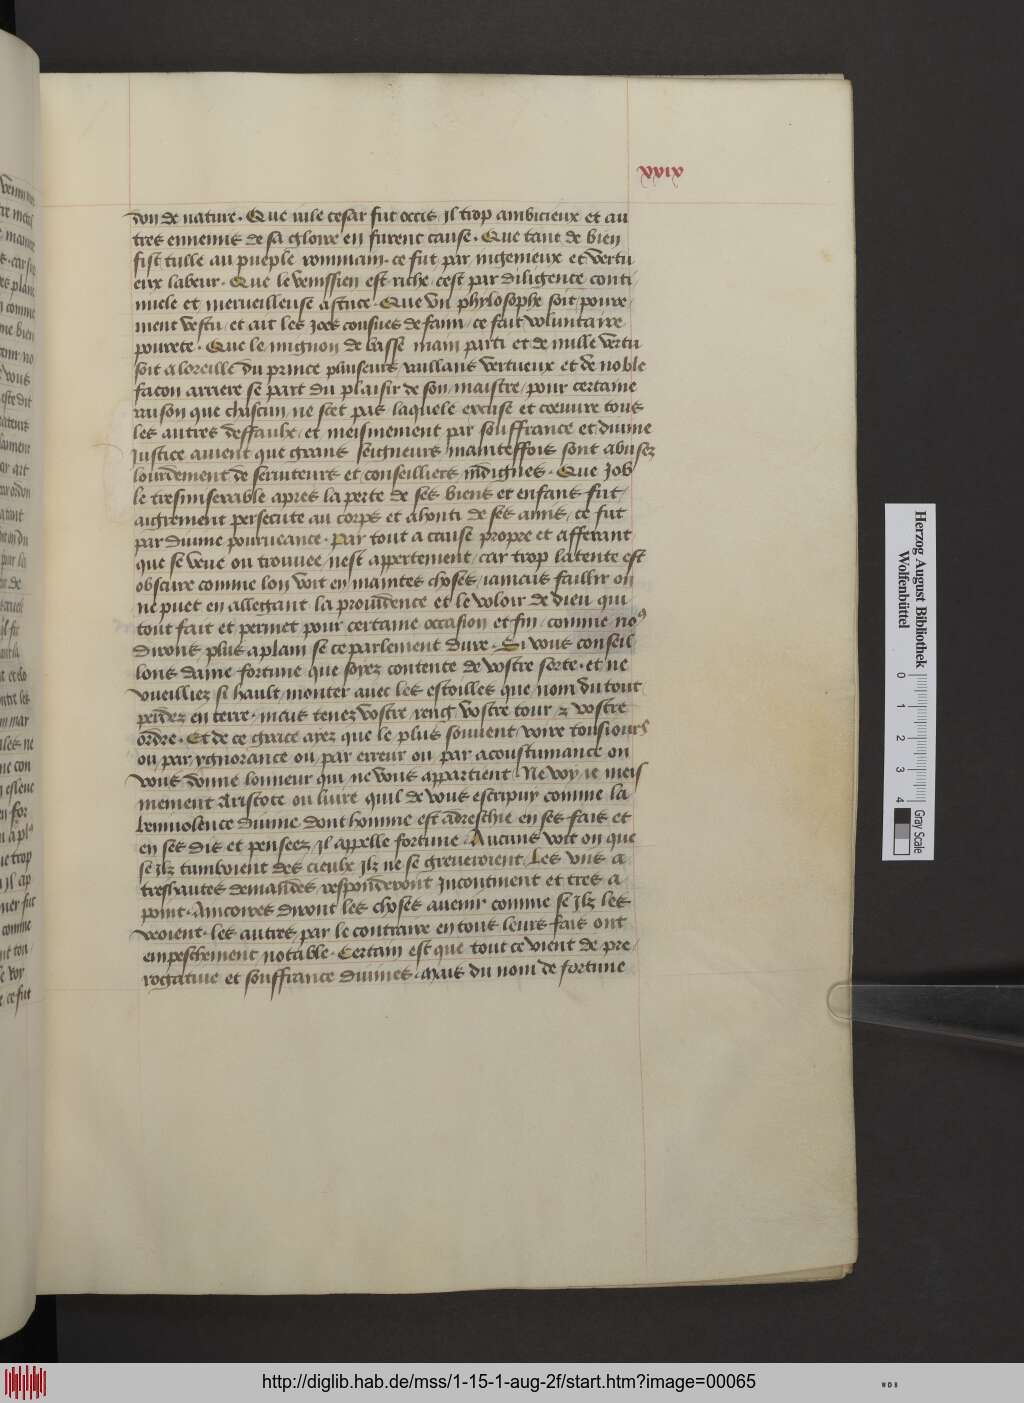 xxix
don de nature. Que iule cesar fut occis il trop ambicieux et au
tres ennemis de sa gloire en furent cause. Que tant de bien
fist tulle au pueple rommain. ce fut par ingenieux et vertu
eux labeur. Que le venissien est riche cest par diligence conti
nuele et merueilleuse astuce. Que vn phylosophe soit poure
ment vestu et ait les joes cousues de faim ce fait voluntaire
pourete. Que le mignon de basse main parti et de nulle vertu
soit a loreille du prince pluiseurs vaillans vertueux et de noble
facon arriere se part du plaisir de son maistre pour certaine
raison que chascun ne scet pas laquele excuse et coeuure tous
les autres deffaulx et meismement par souffrance et diuine
justice auient que grans seigneurs maintesfois sont abusez
lourdement de seruiteurs et conseilliers indignes. Que Job
le tresmiserable apres la perte de ses biens et enfans fut
aigrement persecute au corps et ahonti de ses amis ce fut
par diuine pourueance. par tout a cause propre et afferant
que se veue ou trouuee nest appertement car trop latente est
obscure comme lon voit en maintes choses iamais faillir on
ne puet en allegant la prouidence et le voloir de dieu qui
tout fait et permet pour certaine occasion et fin comme no9
dirons plus a plain se ce parlement dure. Si vous conseil
lons dame fortune que soyez contente de vostre sorte. et ne
vueilliez si hault monter auec les estoilles que nom du tout
perdez en terre. mais tenez vostre reng vostre tour z vostre
ordre. Et de ce grace ayez que le plus souuent voire tousiours
ou par ygnorance ou par erreur ou par acoustumance on
vous donne lonneur qui ne vous appartient. Ne voy ie meis
mement Aristote ou liure quil de vous escripuy comme la
beniuolence diuine dont homme est adreschie en ses fais et
en ses dis et penseez il appelle fortune. Aucuns voit on que
se ilz tumboient des cieulx ilz ne se greueroient Les vns a
treshautes demandes responderont Incontinent et tres a
point. Aincoires diront les choses auenir comme se ilz les
veoient. les autres par le contraire en tous leurs fais ont
empeschement notable. Certain est que tout ce vient de pre
rogatiue et souffrance diuines. mais du nom de fortune
Herzog August Bibliothek
Wolfenbüttel
0 1 2 3 4
Gray Scale
http://diglib.hab.de/mss/1-15-1-aug-2f/start.htm?image=00065
WDB